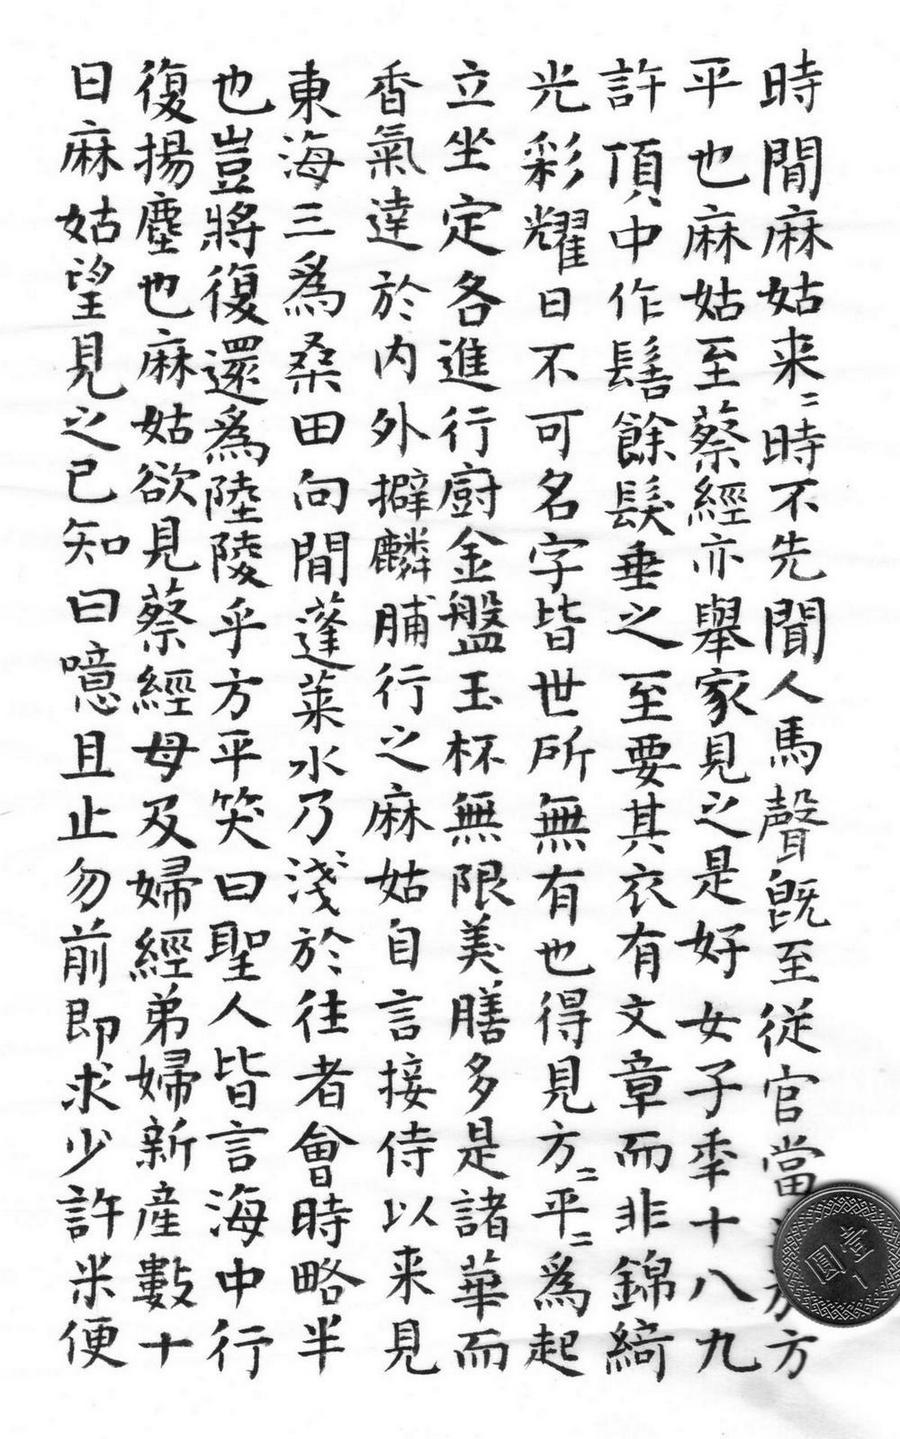 時間麻姑来〻時不先聞人馬聲旣至從官當方
平也麻姑至蔡經亦舉家見之是好女子秊十八九
許頂中作髻餘髮垂之至要其衣有文章而非錦綺
光彩耀日不可名字皆世所無有也得見方〻平〻爲起
立坐定各進行廚金盤玉杯無限美膳多是諸華而
香氣達於内外擗麟脯行之麻姑自言接侍以来見
東海三爲桑田向間蓬莱水乃淺於往者會時略半
也豈將復還爲陸陵乎方平笑曰聖人皆言海中行
復揚塵也麻姑欲見蔡經母及婦經弟婦新產數十
日麻姑望見之已知曰噫且止勿前即求少許米便
壹圓